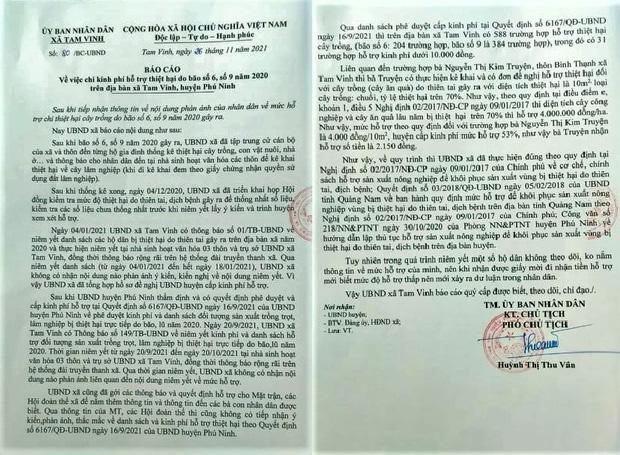 ỦY BAN NHÂN DÂN
XÃ TAM VINH
CỘNG HÒA XÃ HỘI CHỦ NGHĨA VIỆT NAM
Độc lập - Tự do - Hạnh phúc
Số: 80 /BC-UBND
Tam Vinh, ngày 26 tháng 11 năm 2021
BÁO CÁO
Về việc chi kinh phí hỗ trợ thiệt hại do bão số 6, số 9 năm 2020
trên địa bàn xã Tam Vinh, huyện Phú Ninh
Sau khi tiếp nhận thông tin về nội dung phản ánh của nhân dân về mức hỗ
trợ chi thiệt hại cây trồng do bão số 6, số 9 năm 2020 gây ra.
Nay UBND xã báo cáo nội dung như sau:
Sau khi bão số 6, 9 năm 2020 gây ra, UBND xã đã tập trung cử cán bộ
của xã và thôn đến từng hộ gia đình thống kê thiệt hại cây trồng, con vật nuôi, nhà
ở... và thông báo cho nhân dân đến tại nhà sinh hoạt văn hóa các thôn để kê khai
thiệt hại về cây lâm nghiệp (khi đi kê khai đem theo giấy chứng nhận quyền sử
dụng đất lâm nghiệp).
Sau khi thống kê xong, ngày 04/12/2020, UBND xã đã triển khai họp Hội
đồng kiểm tra mức độ thiệt hại do thiên tai, dịch bệnh gây ra để thống nhất số liệu,
kiểm tra các số liệu chưa thống nhất trước khi niêm yết lấy ý kiến và trình huyện
xem xét hỗ trợ.
Ngày 04/01/2021 UBND xã Tam Vinh có thông báo số 01/TB-UBND về
niêm yết danh sách các hộ dân bị thiệt hại do thiên tai gây ra trên địa bàn xã năm
2020 và thực hiện niêm yết tại nhà sinh hoạt văn hóa 03 thôn và trụ sở UBND xã
Tam Vinh, đồng thời thông báo rộng rãi trên hệ thống đài truyền thanh xã. Qua
niêm yết danh sách (từ ngày 04/01/2021 đến hết ngày 18/01/2021), UBND xã
không có nhận nội dung nào phản ánh ý kiến, kiến nghị về nội dung niêm yết. Vì
vậy UBND xã đã tổng hợp hồ sơ đề nghị UBND huyện cấp kinh phí hỗ trợ.
Sau khi UBND huyện Phú Ninh thẩm định và có quyết định phê duyệt và
cấp kinh phí hỗ trợ tại Quyết định số 6167/QĐ-UBND ngày 16/9/2021 của UBND
huyện Phú Ninh về phê duyệt kinh phí và danh sách đối tượng sản xuất trồng trọt,
lâm nghiệp bị thiệt hại trực tiếp do bão, lũ năm 2020. Ngày 20/9/2021, UBND xã
Tam Vinh có Thông báo số 149/TB-UBND về niêm yết kinh phí và danh sách hỗ
trợ đối tượng sản xuất trồng trọt, lâm nghiệp bị thiệt hại trực tiếp do bão,lũ năm
2020. Thời gian niêm yết từ ngày 20/9/2021 đến ngày 20/10/2021 tại nhà sinh hoạt
văn hóa 03 thôn và trụ sở UBND xã Tam Vinh, đồng thời thông báo rộng rãi trên
hệ thống đài truyền thanh xã. Qua thời gian niêm yết, UBND xã không có nhận nội
dung nào phản ánh liên quan đến nội dung niêm yết về mức hỗ trợ.
UBND xã cũng đã gởi các thông báo và quyết định hỗ trợ cho Mặt trận, các
Hội đoàn thể xã để nắm thêm thông tin và thông tin đến các bà con nhân dân được
biết. Qua thông tin của MT, các Hội đoàn thể thì cũng không có tiếp nhận ý
kiến,phản ánh, thắc mắc về danh sách và kinh phí hỗ trợ thiệt hại theo Quyết định
số 6167/QĐ-UBND ngày 16/9/2021 của UBND huyện Phú Ninh.
Qua danh sách phê duyệt cấp kinh phí tại Quyết định số 6167/QĐ-UBND
ngày 16/9/2021 thì trên địa bàn xã Tam Vinh có 588 trường hợp hỗ trợ thiệt hại
cây trồng, (bão số 6: 204 trường hợp, bão số 9 là 384 trường hợp), trong đó có 31
trường hợp hỗ trợ kinh phí dưới 10.000 đồng.
Liên quan đến trường hợp bà Nguyễn Thị Kim Truyện, thôn Bình Thạnh xã
Tam Vinh thì bà Truyện có thực hiện kê khai và có đơn đề nghị hỗ trợ thiệt hại đối
với cây trồng (cây ăn quả) do thiên tai gây ra với diện tích thiệt hại là 10m² loại
cây trồng: chuối, tỷ lệ thiệt hại trên 70%. Như vậy, theo quy định tại điều điểm e,
khoản 1, điều 5 Nghị định 02/2017/NĐ-CP ngày 09/01/2017 thì diện tích cây công
nghiệp và cây ăn quả lâu năm bị thiệt hại trên 70% thì hỗ trợ 4.000.000 đồng/ha.
Như vậy, mức hỗ trợ theo quy định đối với trường hợp bà Nguyễn Thị Kim Truyện
là 4.000 đồng/10m², huyện cấp kinh phí mức hỗ trợ 53%, như vậy bà Truyện nhận
hỗ trợ số tiền là 2.150 đồng.
Như vậy, về quy trình thì UBND xã đã thực hiện đúng theo quy định tại
Nghị định số 02/2017/NĐ-CP ngày 09/01/2017 của Chính phủ về cơ chế, chính
sách hỗ trợ sản xuất nông nghiệp để khôi phục sản xuất vùng bị thiệt hại do thiên
tai, dịch bệnh; Quyết định số 03/2018/QĐ-UBND ngày 05/02/2018 của UBND
tỉnh Quảng Nam về ban hành quy định mức hỗ trợ để khôi phục sản xuất nông
nghiệp vùng bị thiệt hại do thiên tai, dịch bệnh trên địa bàn tỉnh Quảng Nam theo
Nghị định số 02/2017/NĐ-CP ngày 09/01/2017 của Chính phủ; Công văn số
218/NN&PTNT ngày 30/10/2020 của Phòng NN&PTNT huyện Phú Ninh về
hướng dẫn lập thủ tục hỗ trợ sản xuất nông nghiệp để khôi phục sản xuất vùng bị
thiệt hại do thiên tai, dịch bệnh trên địa bàn huyện.
Tuy nhiên trong quá trình niêm yết một số hộ dân không theo dõi, ko nắm
thông tin về mức hỗ trợ của mình, nên khi nhận được giấy mời đi nhận tiền hỗ trợ
mới biết mức độ hỗ trợ thấp nên mới xảy ra dư luận trong nhân dân.
Vậy UBND xã Tam Vinh báo cáo quý cấp được biết, theo dõi, chỉ đạo./.
Nơi nhận:
- UBND huyện;
- BTV. Đảng ủy, HĐND xã;
- Lưu: VT.
TM. ỦY BAN NHÂN DÂN
KT. CHỦ TỊCH
PHÓ CHỦ TỊCH
Huỳnh Thị Thu Vân